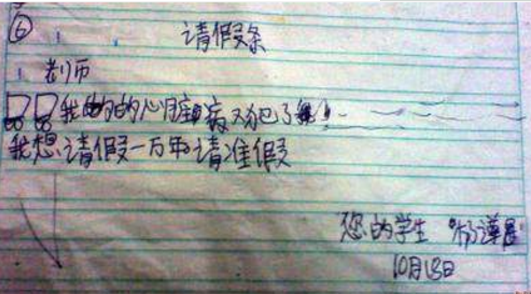 ⑥
请假条
老师
我的的心脏病又犯了
我想请假一万年请准假
您的学生 杨
10月18日